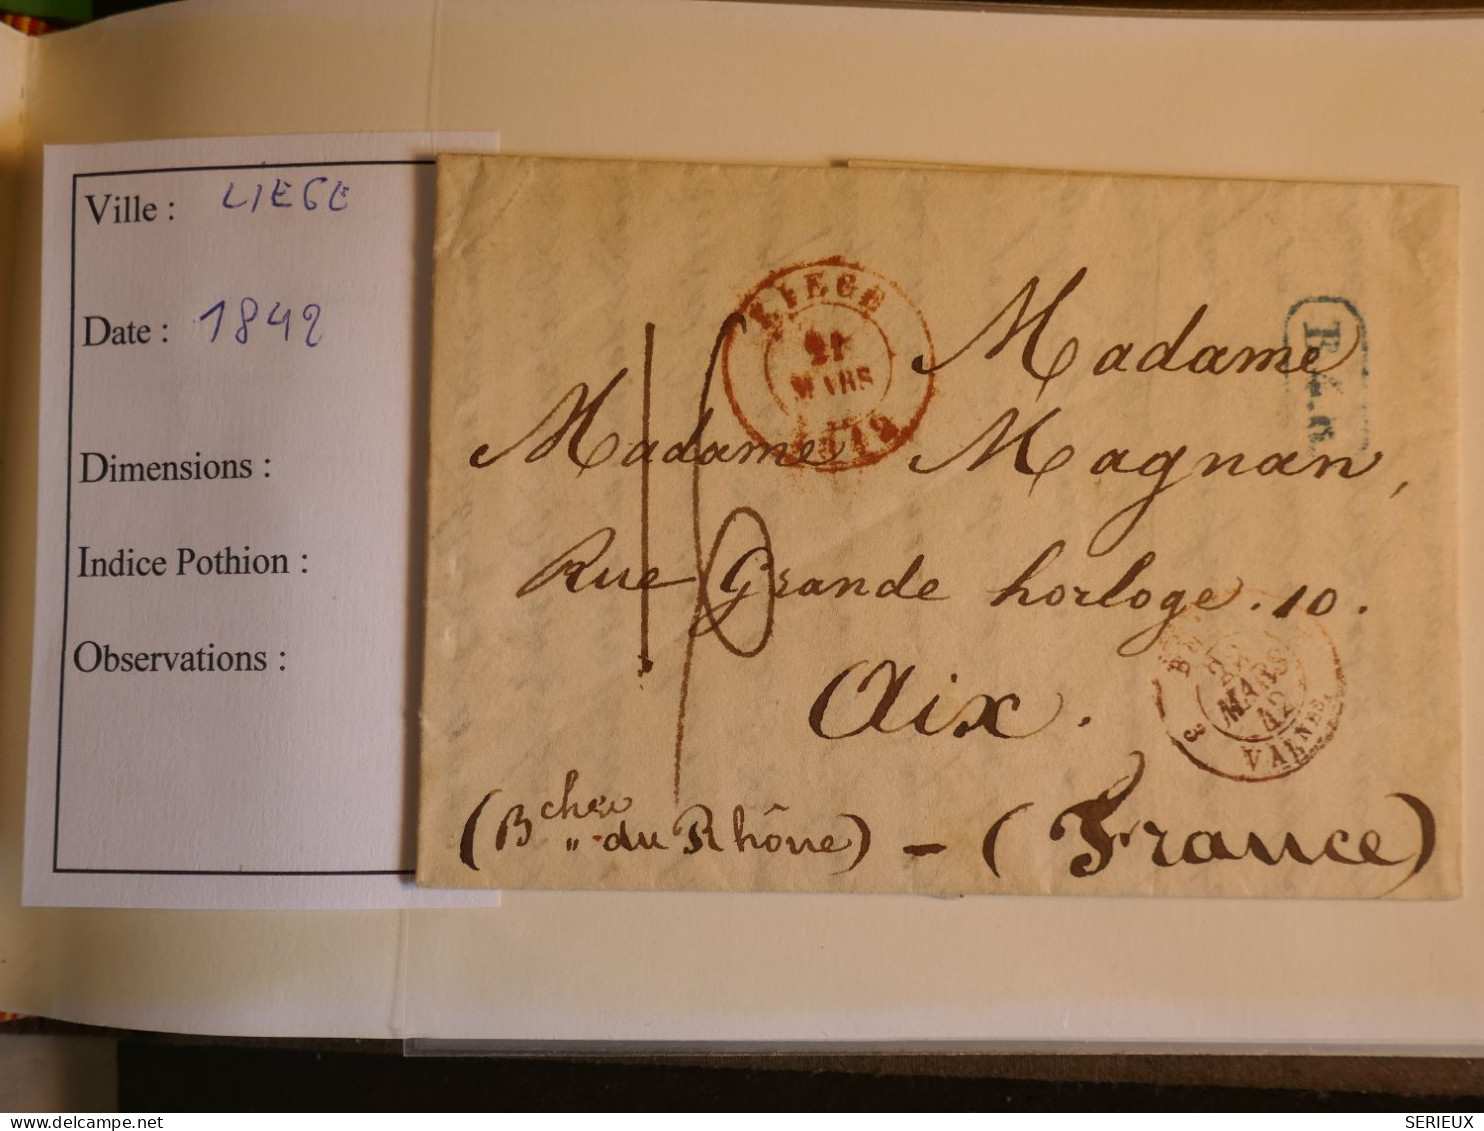 Ville : LIEGE
Date : 1842
Dimensions :
Indice Pothion :
Observations :
LIEGE
21
MARS
1842
B.4.R
Madame
Madame Magnan,
Rue Grande horloge. 10.
Aix.
(Bches du Rhône) - (France)
22
MARS
42
VALNES
3
SERIEUX
delcampe.net